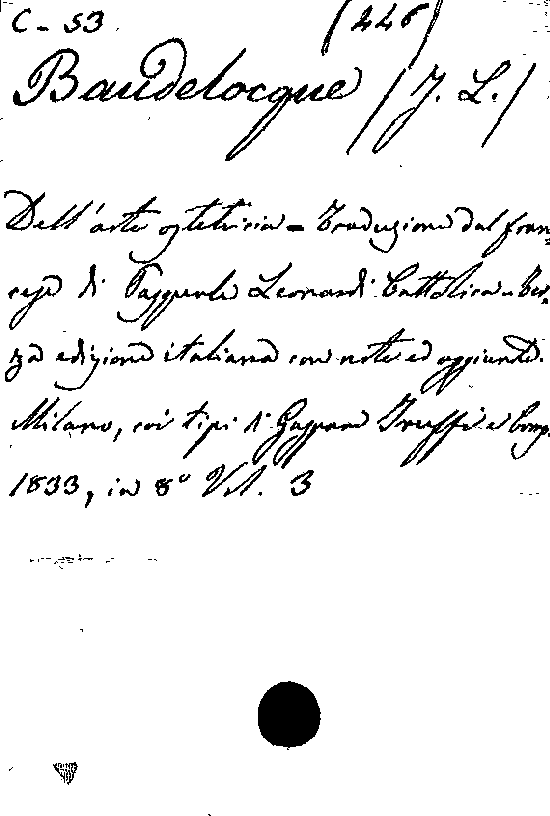 C - 53 (226)
Baudelocque (J. L.)
Dell'arte ostetricia = Traduzione dal fran=
cese di Pasquale Leonardi Cattolica = Ter=
za edizione italiana con note ed aggiunte.
Milano, coi tipi di Gaspare Truffi e Comp.
1833, in 8° Vol. 3